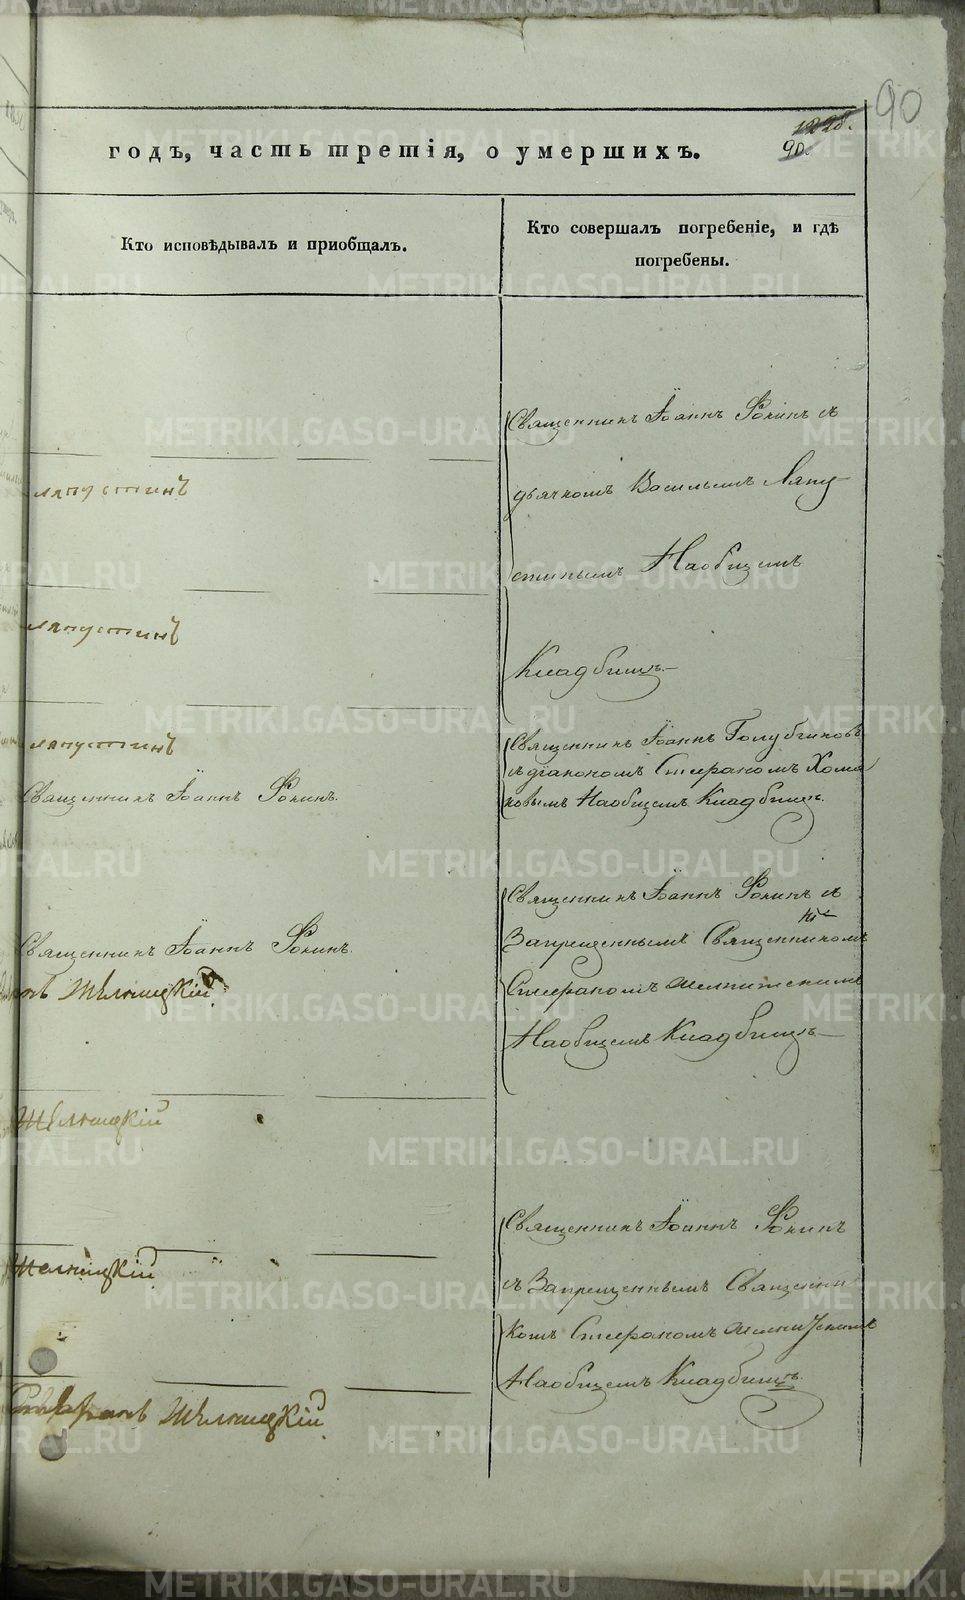 90
1228.
90.
годъ, часть третія, о умершихъ.
Кто исповѣдывалъ и приобщалъ.
Кто совершалъ погребеніе, и гдѣ
погребены.
Священникъ Іоаннъ Фокинъ съ
дьячкомъ Васильемъ Лапу-
стинымъ На общемъ
Кладбищѣ.
лапустинъ
лапустинъ
лапустинъ
Священникъ Іоаннъ Голубчиковъ
съ діакономъ Стефаномъ Хома
ковымъ На общемъ Кладбищѣ.
Священникъ Іоаннъ Фокинъ.
Священникъ Іоаннъ Фокинъ съ
Запрещеннымъ Священникомъ
Стефаномъ
На общемъ Кладбищѣ
Священникъ Іоаннъ Фокинъ.
Священникъ Іоаннъ Фокинъ
съ Запрещеннымъ Священни
комъ Стефаномъ
На общемъ Кладбищѣ.
METRIKI.GASO-URAL.RU